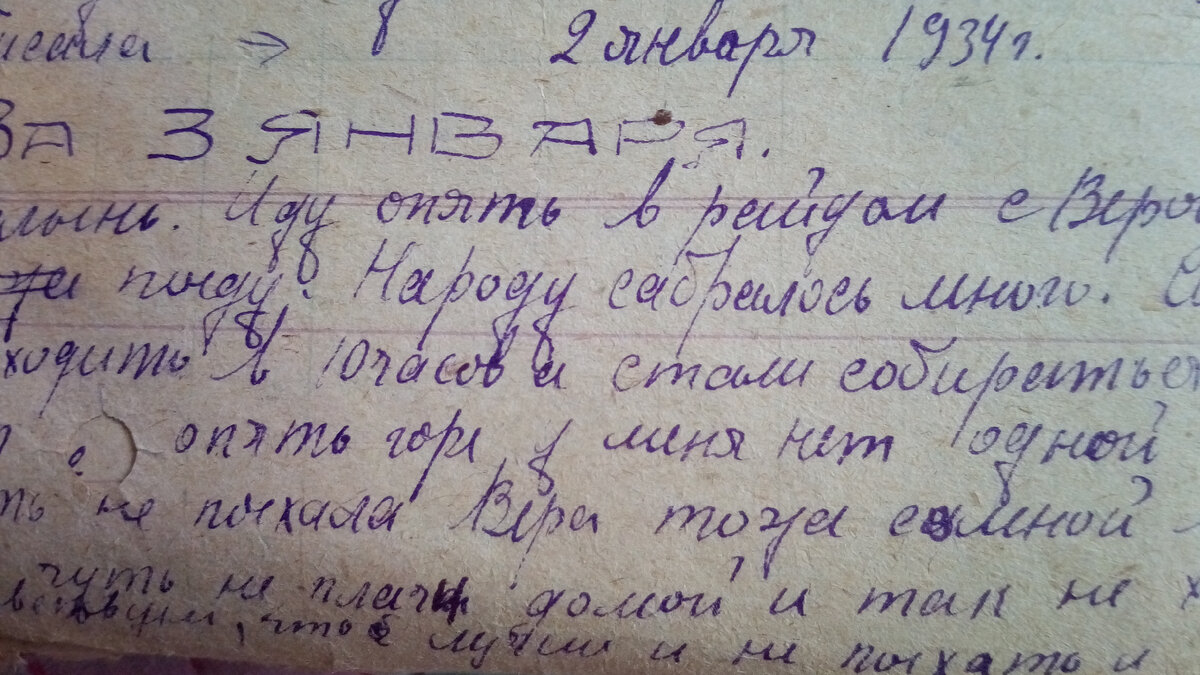 исала → 2 января 1934 г.
ЗА 3 ЯНВАРЯ.
Иду опять в райдом с Веро
поеду. Народу сабралось много.
ходить в 10 часов и стали собираться
опять горе у меня нет одной
ть не поехала Вера тоже сомной
чуть не плачу домой и так не х
что лучше и не поехать и